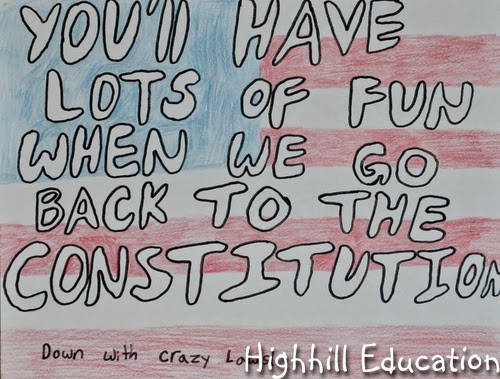 YOU'll HAVE
LOTS OF FUN
WHEN WE GO
BACK TO THE
CONSTITUTION
Down with crazy Laws!
Highhill Education